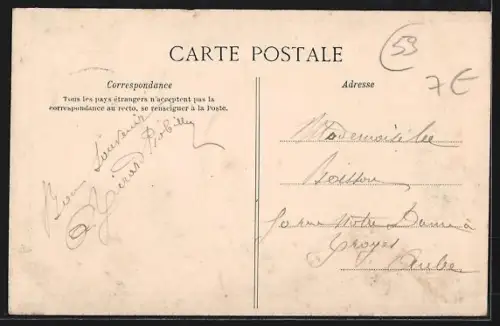 CARTE POSTALE
53
7€
Correspondance
Tous les pays étrangers n'acceptent pas la
correspondance au recto, se renseigner à la Poste.
Bon Souvenir
Adresse
Mademoiselle
Boisson
rue Notre Dame à
Troyes
Aube